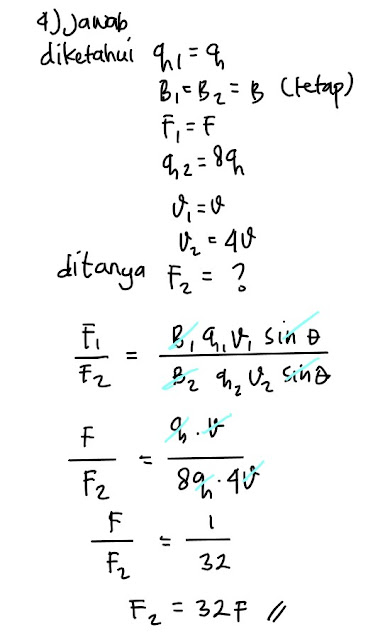 4) Jawab
diketahui q1 = q
B₁ = B₂ = B (tetap)
F₁ = F
q₂ = 8q
v₁ = v
v₂ = 4v
ditanya F₂ = ?
F₁/F₂ = B₁ q₁ v₁ sin θ / B₂ q₂ v₂ sin θ
F/F₂ = q . v / 8q . 4v
F/F₂ = 1/32
F₂ = 32F //